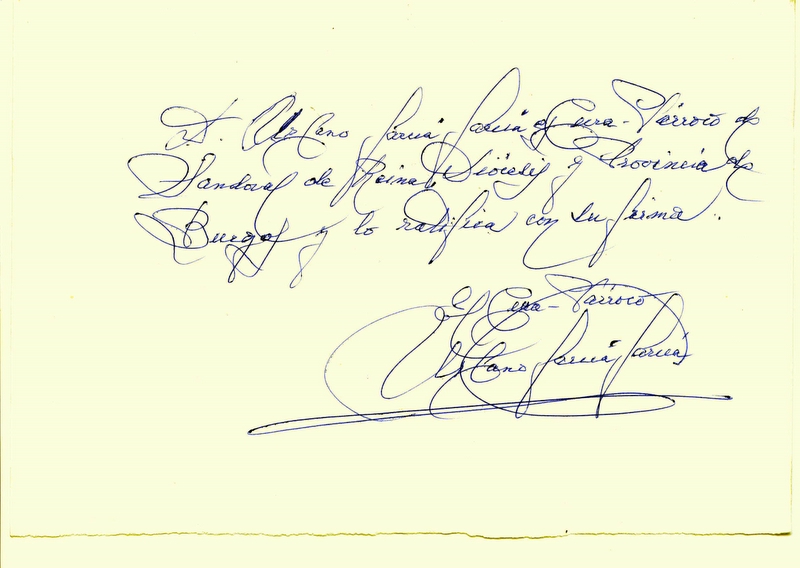 D. Urbano García García, Cura-Párroco de
Sandoval de la Reina, Diócesis y Provincia de
Burgos y lo ratifica con su firma.
El Cura-Párroco
Urbano García García